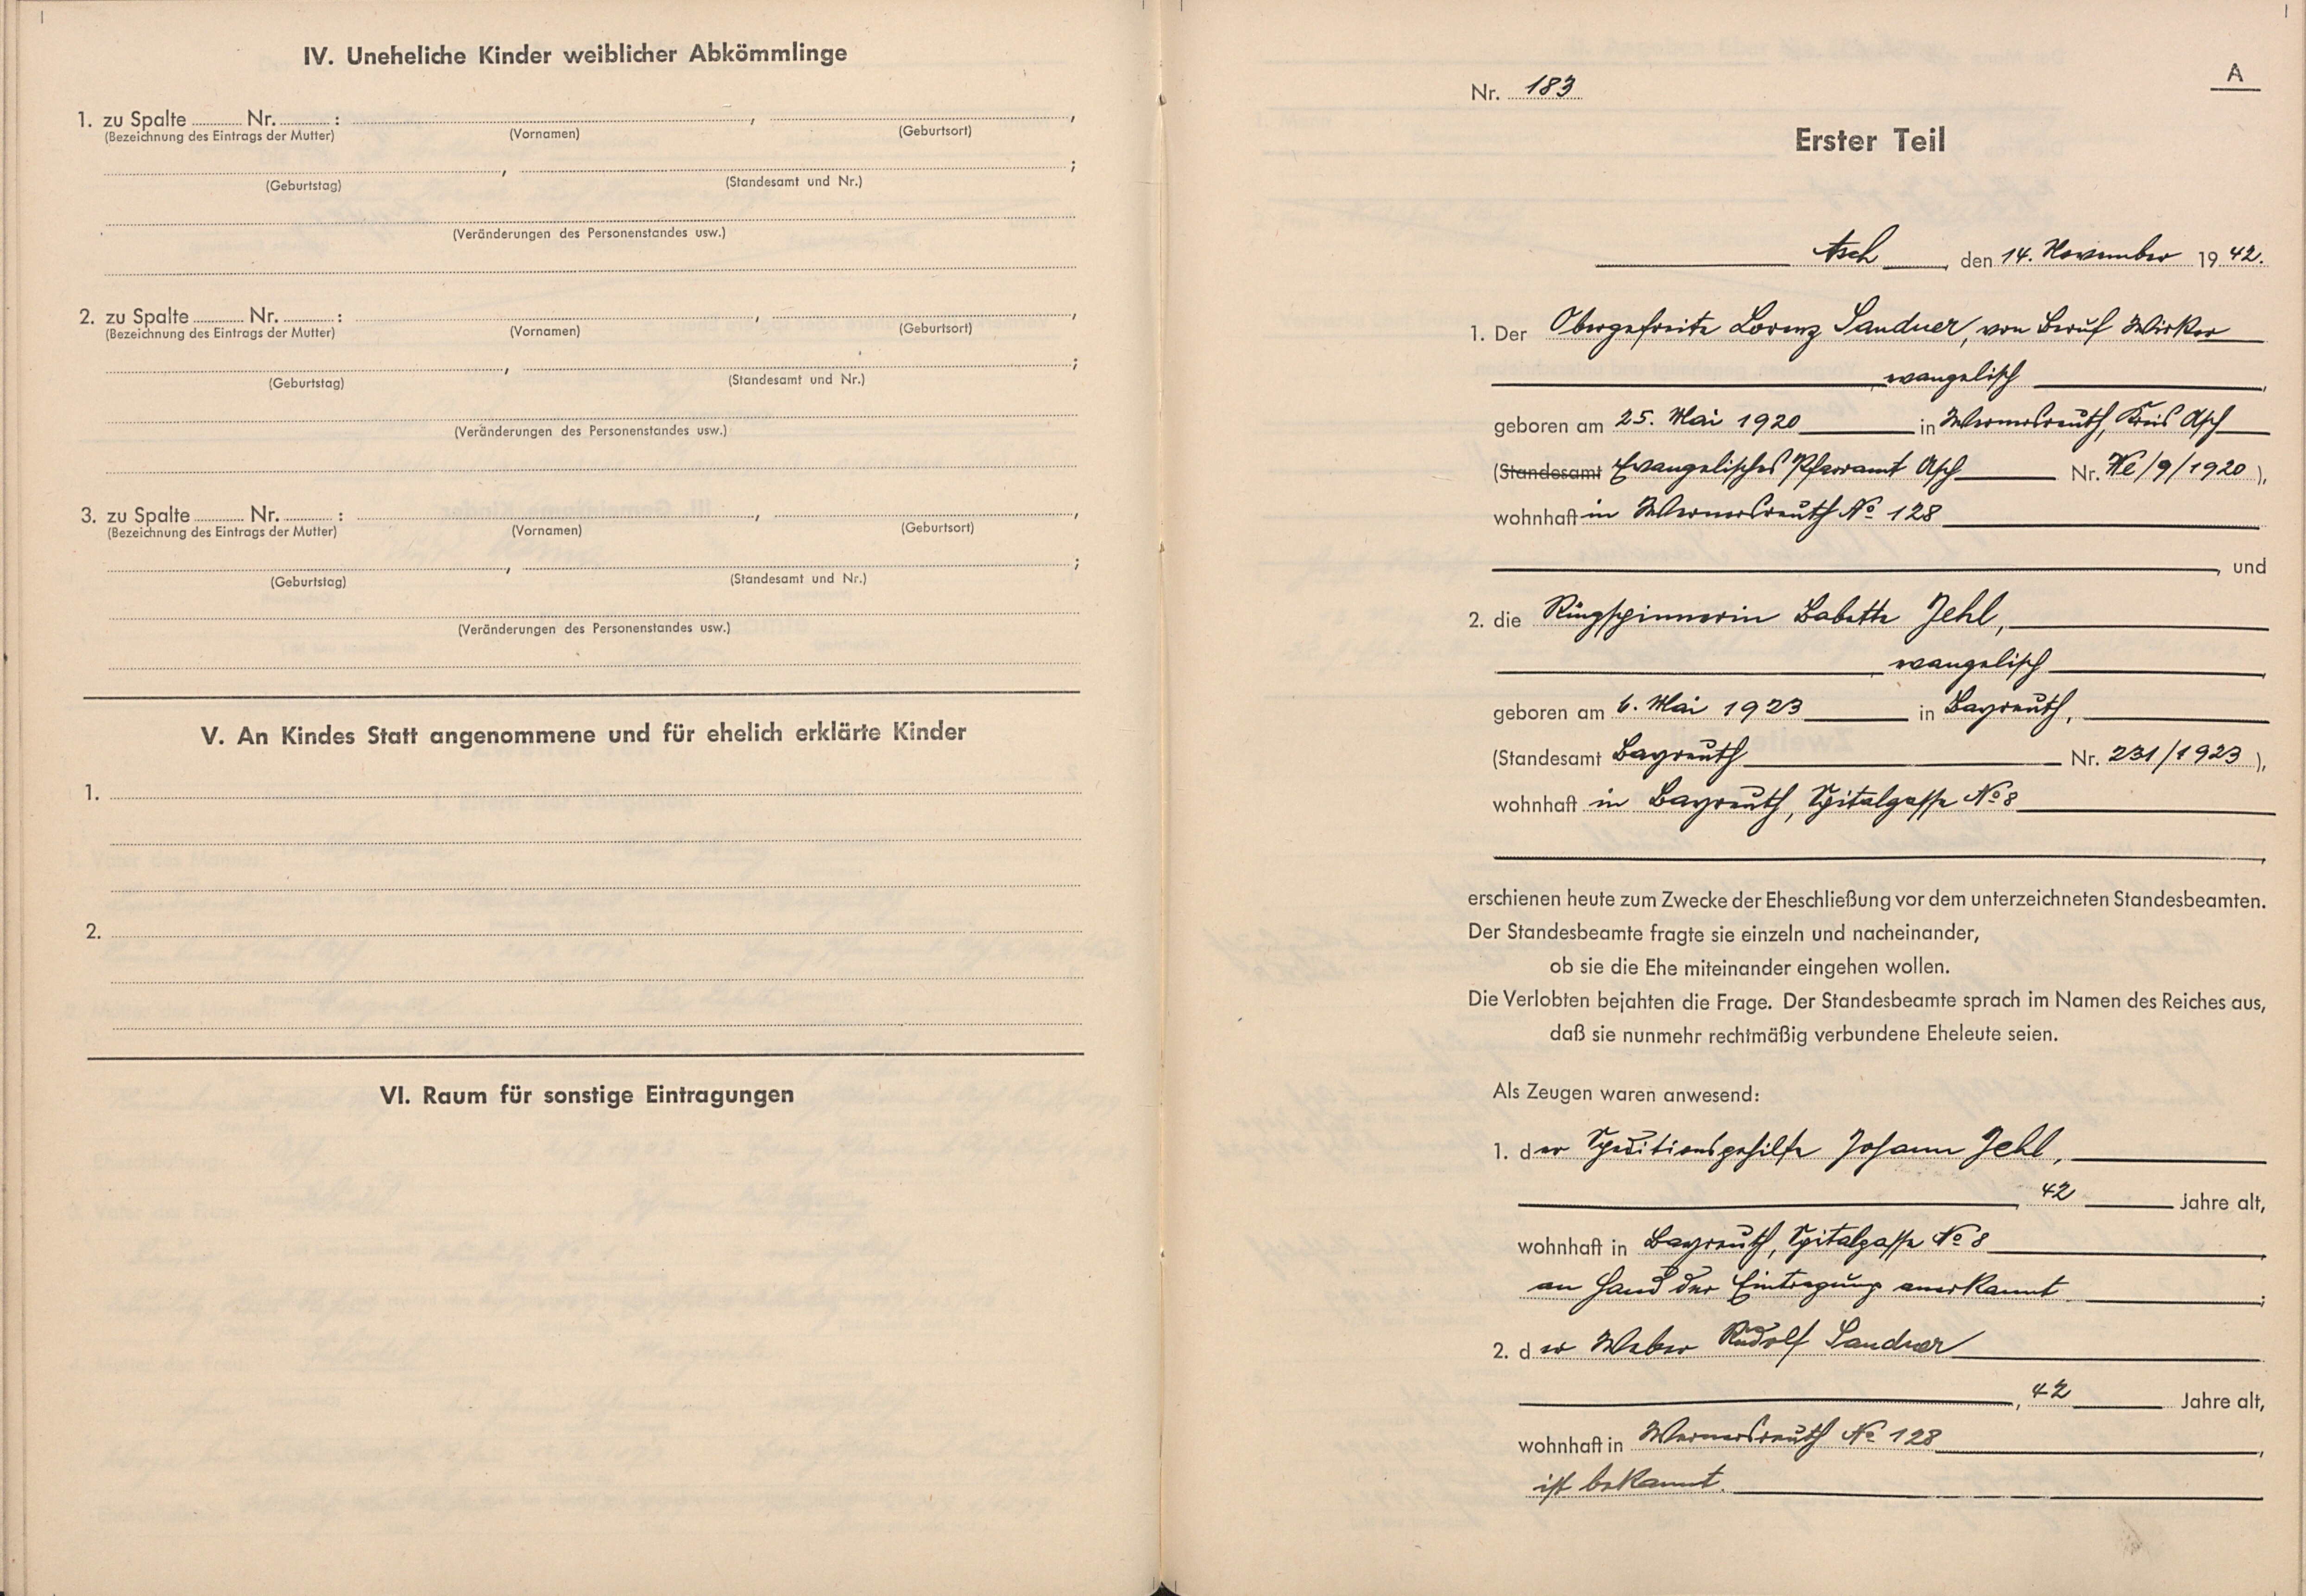 IV. Uneheliche Kinder weiblicher Abkömmlinge
1. zu Spalte Nr. : , ,
(Bezeichnung des Eintrags der Mutter) (Vornamen) (Geburtsort)
, ;
(Geburtstag) (Standesamt und Nr.)
(Veränderungen des Personenstandes usw.)
2. zu Spalte Nr. : , ,
(Bezeichnung des Eintrags der Mutter) (Vornamen) (Geburtsort)
, ;
(Geburtstag) (Standesamt und Nr.)
(Veränderungen des Personenstandes usw.)
3. zu Spalte Nr. : , ,
(Bezeichnung des Eintrags der Mutter) (Vornamen) (Geburtsort)
, ;
(Geburtstag) (Standesamt und Nr.)
(Veränderungen des Personenstandes usw.)
V. An Kindes Statt angenommene und für ehelich erklärte Kinder
1.
2.
VI. Raum für sonstige Eintragungen
A
Nr. 183
Erster Teil
Asch, den 14. November 1942.
1. Der Obergefreite Lorenz Sandner, von Beruf Wirker
, evangelisch,
geboren am 25. Mai 1920 in Wernersreuth, Kreis Asch
(Standesamt Evangelisches Pfarramt Asch Nr. We/9/1920),
wohnhaft in Wernersreuth No 128
, und
2. die Ringspinnerin Babette Jehl,
, evangelisch,
geboren am 6. Mai 1923 in Bayreuth,
(Standesamt Bayreuth Nr. 231/1923),
wohnhaft in Bayreuth, Spitalgasse No 8
,
erschienen heute zum Zwecke der Eheschließung vor dem unterzeichneten Standesbeamten.
Der Standesbeamte fragte sie einzeln und nacheinander,
ob sie die Ehe miteinander eingehen wollen.
Die Verlobten bejahten die Frage. Der Standesbeamte sprach im Namen des Reiches aus,
daß sie nunmehr rechtmäßig verbundene Eheleute seien.
Als Zeugen waren anwesend:
1. der Speditionsgehilfe Johann Jehl,
, 42 Jahre alt,
wohnhaft in Bayreuth, Spitalgasse No 8,
an Hand der Eintragung anerkannt;
2. der Weber Rudolf Sandner
, 42 Jahre alt,
wohnhaft in Wernersreuth No 128,
ist bekannt.